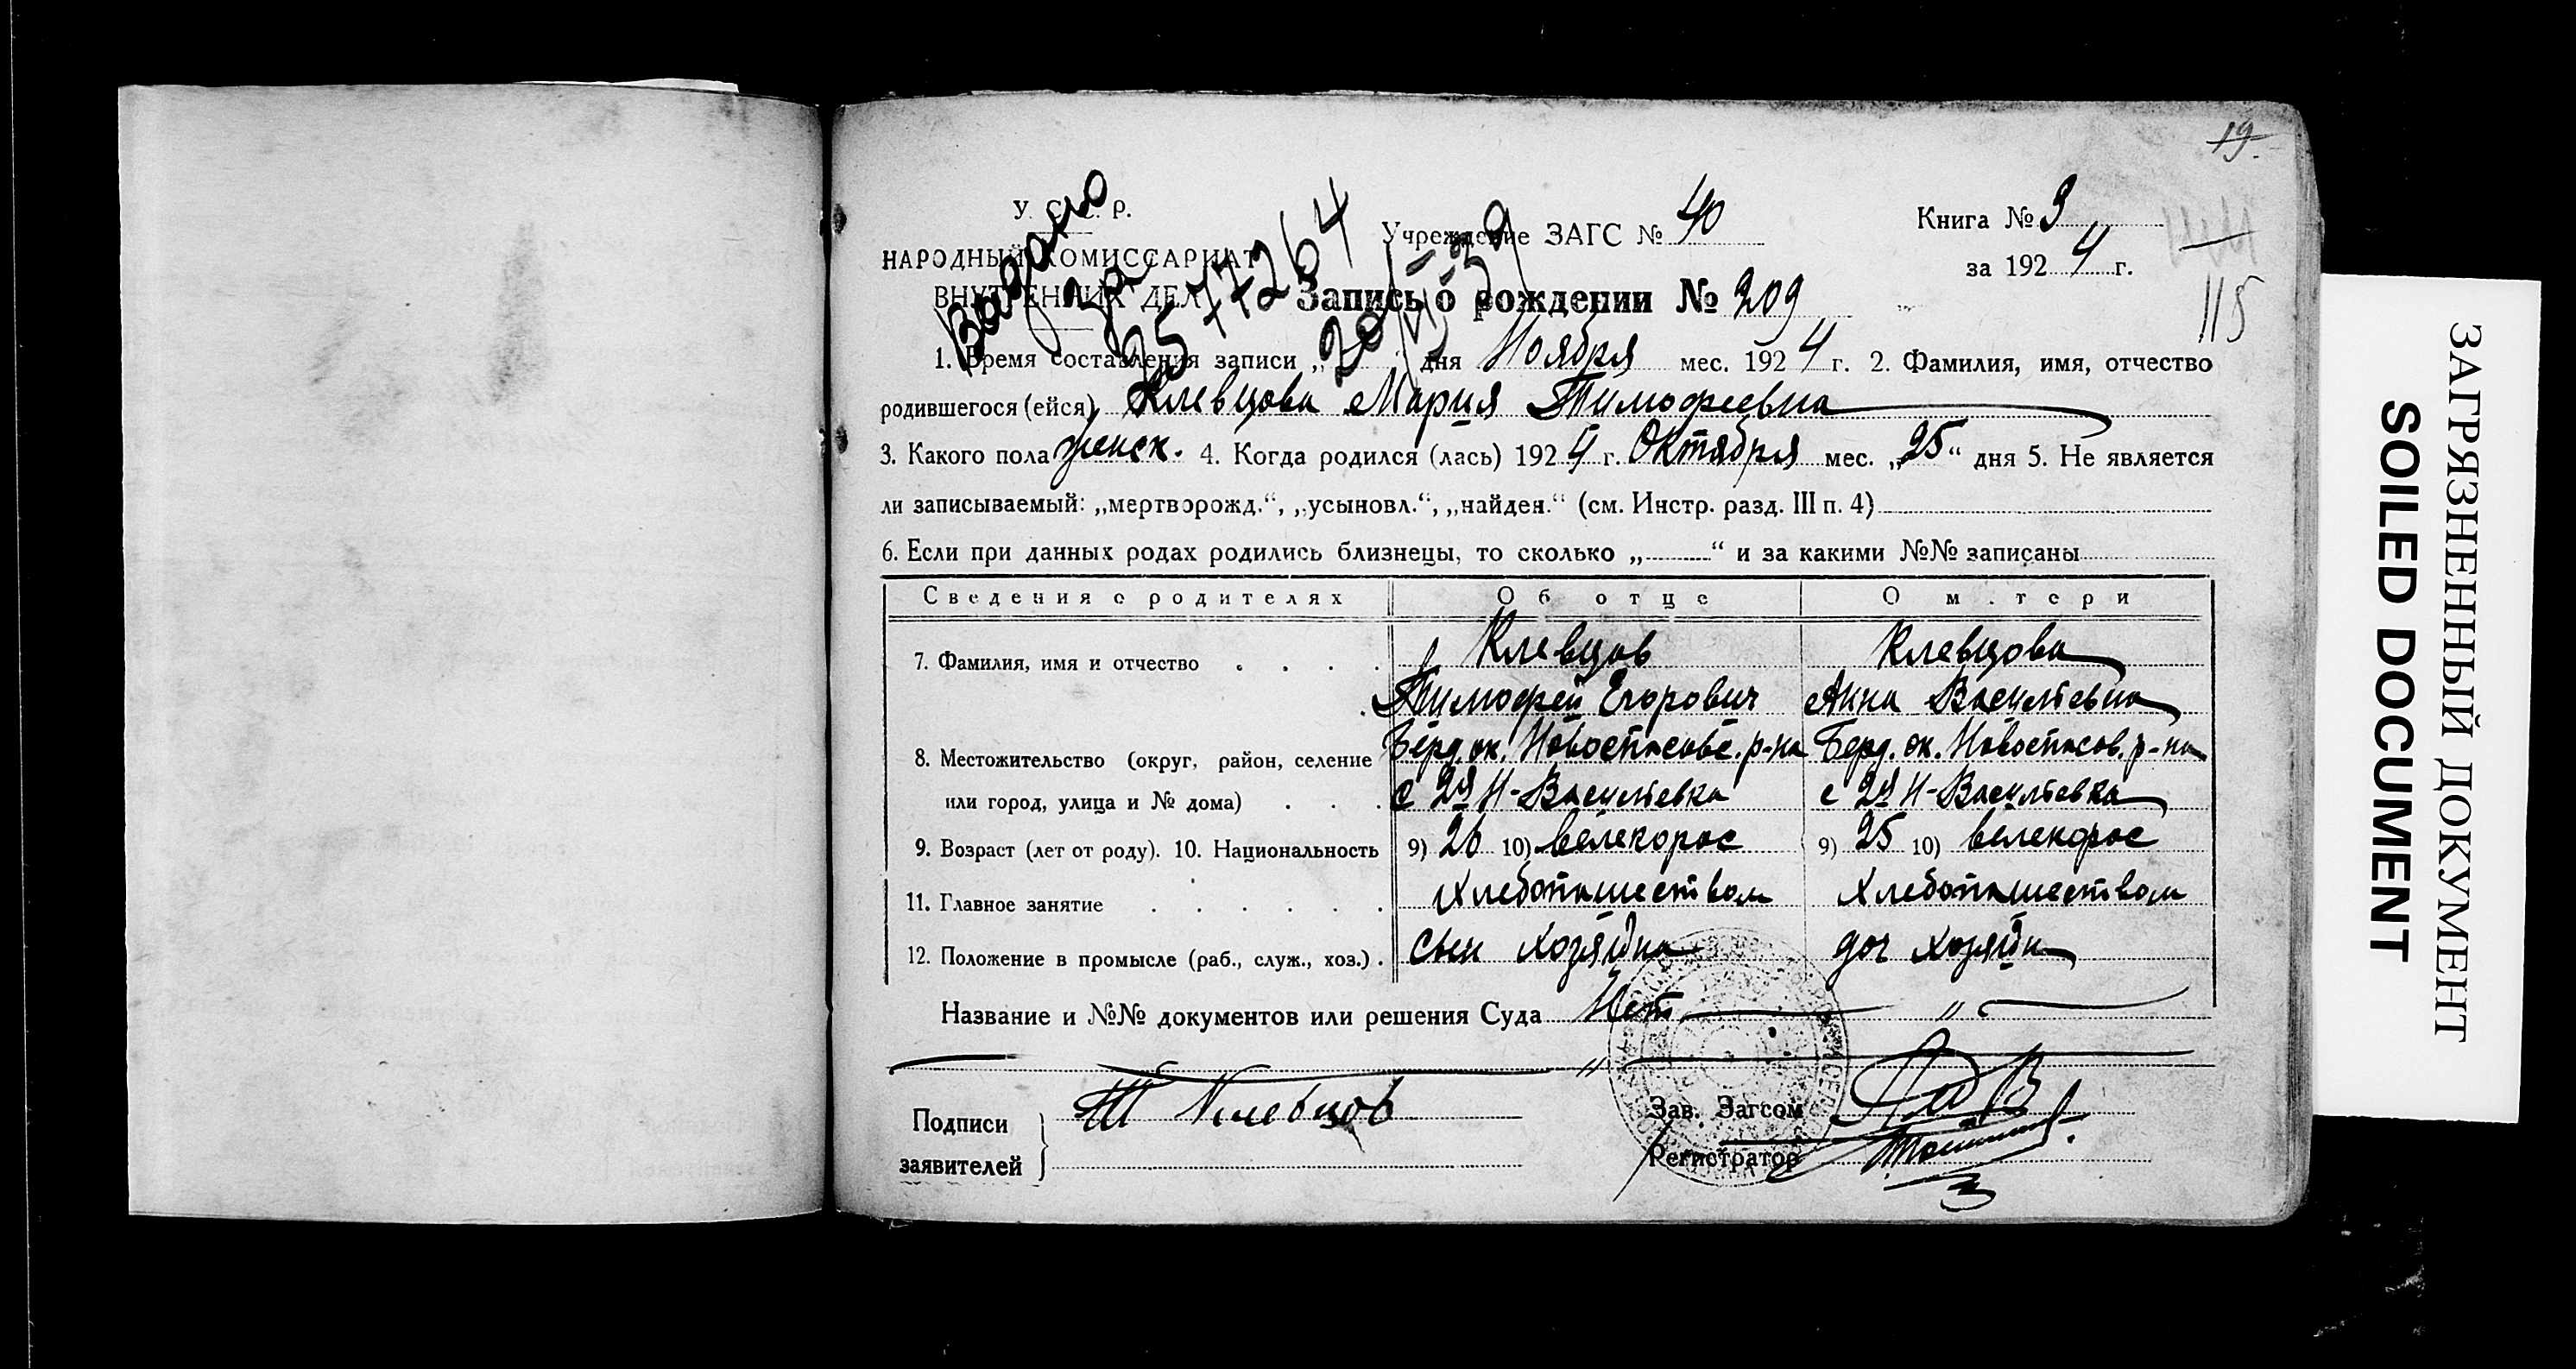 19.
У. С. С. Р.
НАРОДНЫЙ КОМИССАРИАТ
ВНУТРЕННИХ ДЕЛ
Учреждение ЗАГС № 40
Книга № 3
за 1924 г.
115
Запись о рождении № 209
1. Время составления записи „20" дня Ноября мес. 1924 г. 2. Фамилия, имя, отчество
родившегося (ейся) Клевцова Мария Тимофеевна
3. Какого пола женск. 4. Когда родился (лась) 1924 г. Октября мес. „25" дня 5. Не является
ли записываемый: „мертворожд.", „усыновл.", „найден." (см. Инстр. разд. III п. 4)
6. Если при данных родах родились близнецы, то сколько „ " и за какими №№ записаны
Сведения о родителях Об отце О матери
7. Фамилия, имя и отчество Клевцов Клевцова
Тимофей Егорович Анна Васильевна
8. Местожительство (округ, район, селение Берд. ок. Новоспасовс. р-на Берд. ок. Новоспасов. р-на
или город, улица и № дома) с 2й Н-Васильевка с 2й Н-Васильевка
9. Возраст (лет от роду). 10. Национальность 9) 26 10) велекорос 9) 25 10) велекорос
11. Главное занятие Хлебопашеством Хлебопашеством
12. Положение в промысле (раб., служ., хоз.). сын хозяина доч хозяина
Название и №№ документов или решения Суда Нет "
"
Подписи
заявителей
Т Клевцов
Зав. Загсом
Регистратор
Выдано
25 77264
ЗАГРЯЗНЕННЫЙ ДОКУМЕНТ
SOILED DOCUMENT